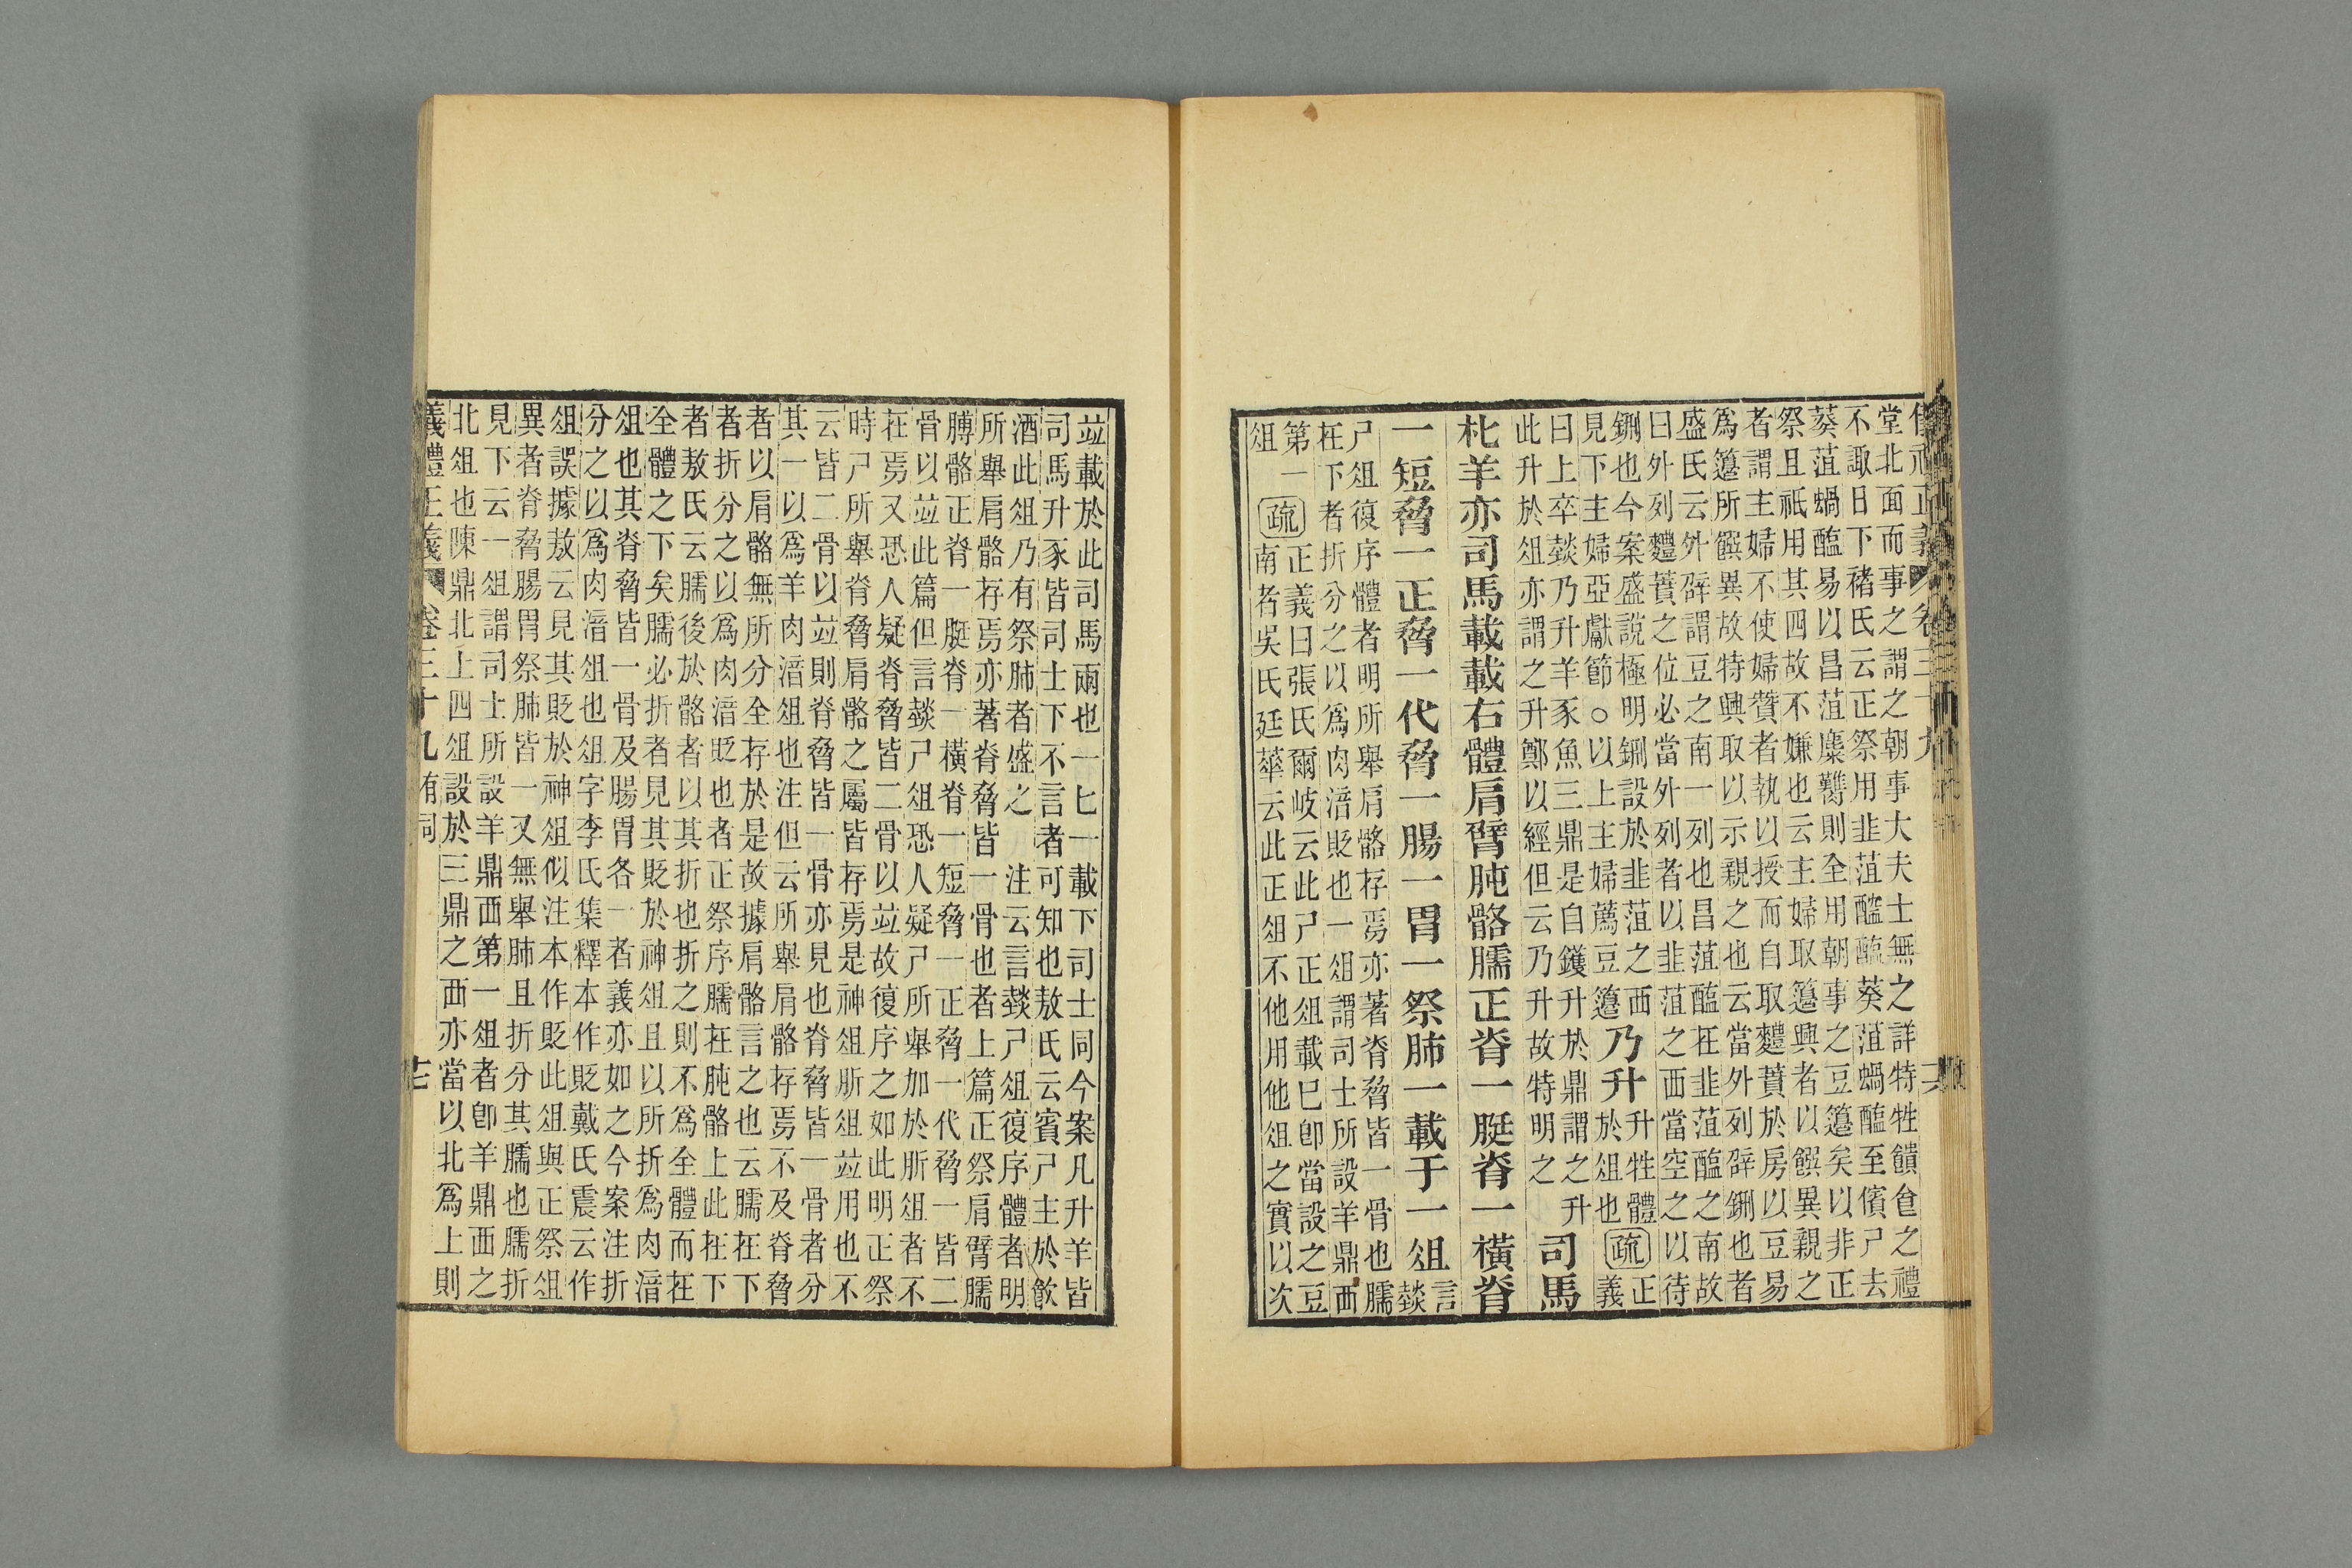 儀禮正義 卷三十九
堂北面而事之謂之朝事大夫士無之詳特牲饋食之禮
不諏日下褚氏云正祭用韭菹醓醢葵菹蝸醢至儐尸去
葵菹蝸醢易以昌菹麋臡則全用朝事之豆籩矣以非正
祭且祇用其四故不嫌也云主婦取籩興者以饌異親之
者謂主婦不使婦贊者執以授而自取麷蕡於房以豆易
爲籩所饌異故特興取以示親之也云當外列辟鉶也者
盛氏云外辟謂豆之南一列也昌菹醢在韭菹醢之南故
曰外列麷蕡之位必當外列者以韭菹之西當空之以待
鉶也今案盛說極明鉶設於韭菹之西
見下主婦亞獻節○以上主婦薦豆籩
乃升
升牲體
於俎也
疏
正
義
曰上卒燅乃升羊豕魚三鼎是自鑊升於鼎謂之升
此升於俎亦謂之升鄭以經但云乃升故特明之
司馬
朼羊亦司馬載載右體肩臂肫骼臑正脊一脡脊一橫脊
一短脅一正脅一代脅一腸一胃一祭肺一載于一俎
言
燅
尸俎復序體者明所舉肩骼存焉亦著脊脅皆一骨也臑
在下者折分之以爲肉湆貶也一俎謂司士所設羊鼎西
第一
俎
疏
正義曰張氏爾岐云此尸正俎載已卽當設之豆
南者吳氏廷華云此正俎不他用他俎之實以次
竝載於此司馬爾也一匕一載下司士同今案凡升羊皆
司馬升豕皆司士下不言者可知也敖氏云賓尸主於飲
酒此俎乃有祭肺者盛之 注云言燅尸俎復序體者明
所舉肩骼存焉亦著脊脅皆一骨也者上篇正祭肩臂臑
膊骼正脊一脡脊一橫脊一短脅一正脅一代脅一皆二
骨以竝此篇但言燅尸俎恐人疑尸所舉加於肵俎者不
在焉又恐人疑脊脅皆二骨以竝故復序之如此明正祭
時尸所舉脊脅肩骼之屬皆存焉是神俎肵俎竝用也不
云皆二骨以竝則脊脅皆一骨亦見也脊脅皆一骨者分
其一以爲羊肉湆俎也注但云所舉肩骼存焉不及脊脅
者以肩骼無所分全存於是故據肩骼言之也云臑在下
者折分之以爲肉湆貶也者正祭序臑在肫骼上此在下
者敖氏云臑後於骼者以其折也折之則不爲全體而在
全體之下矣臑必折者見其貶於神俎且以所折爲肉湆
俎也其脊脅皆一骨及腸胃各一者義亦如之今案注折
分之以爲肉湆俎也俎字李氏集釋本作貶戴氏震云作
俎誤據敖云見其貶於神俎似注本作貶此俎與正祭俎
異者脊脅腸胃祭肺皆一又無舉肺且折分其臑也臑折
見下云一俎謂司士所設羊鼎西第一俎者卽羊鼎西之
北俎也陳鼎北上四俎設於三鼎之西亦當以北爲上則
儀禮正義 卷三十九 有司